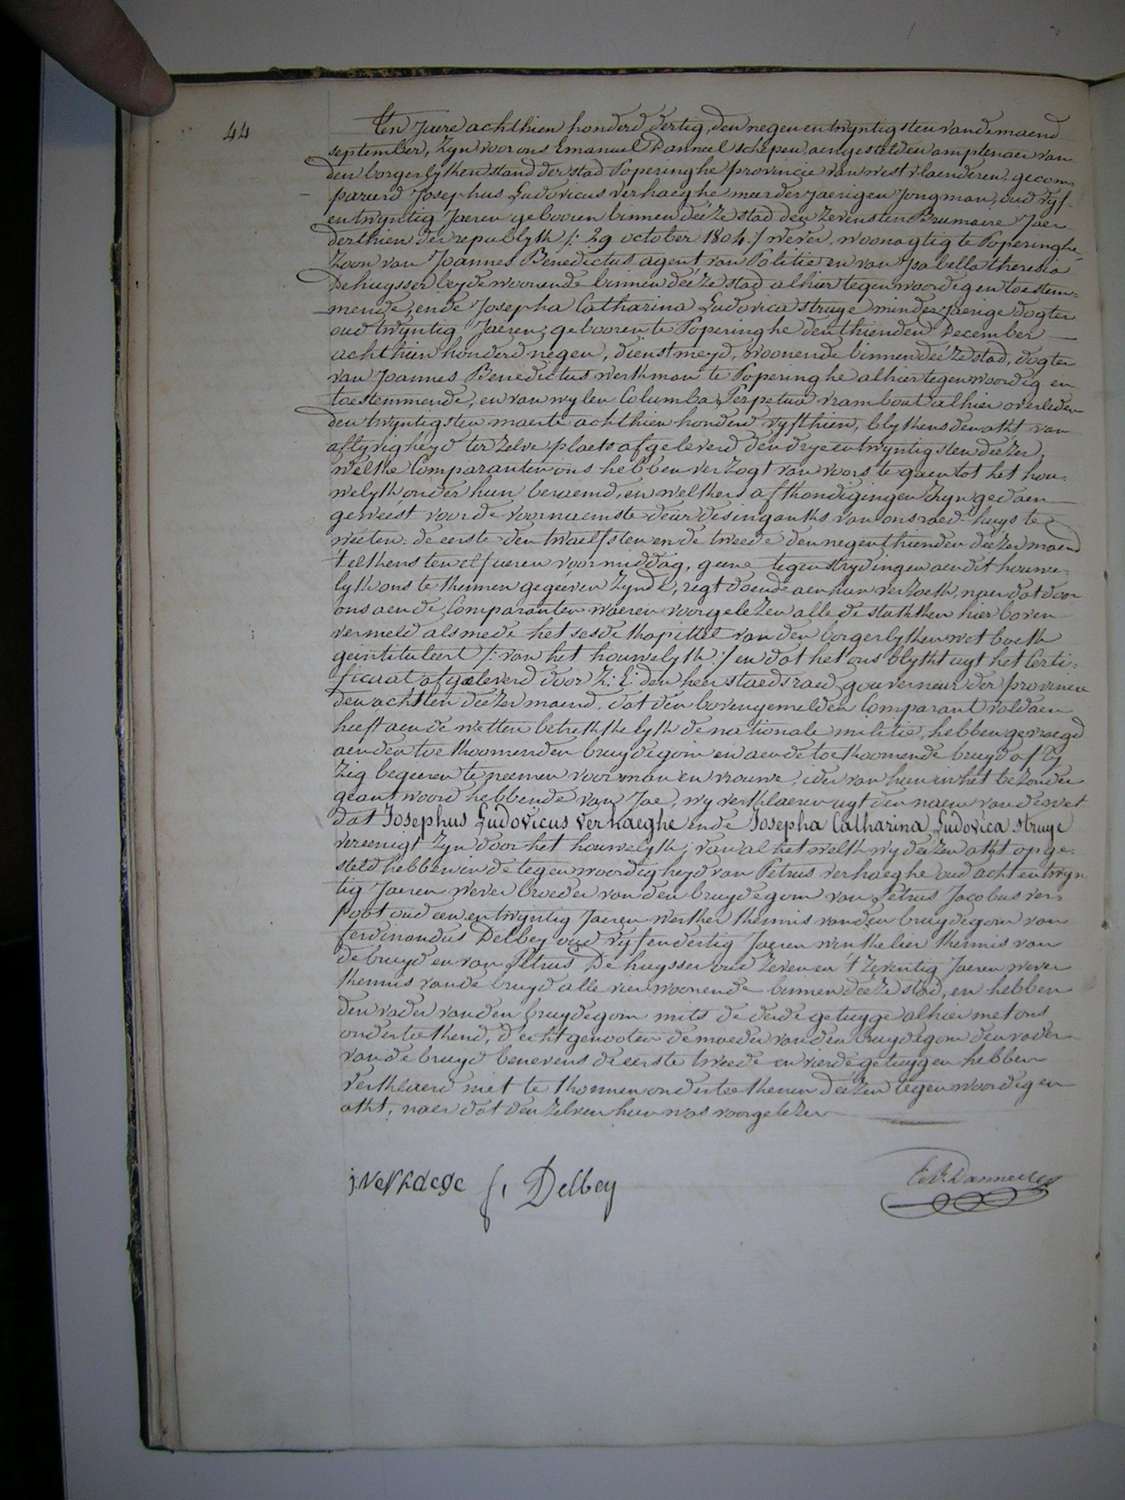 44
Ten Jaere achthien honderd dertig, den negen en twyntigsten van de maend
september, zyn voor ons Emanuel Danneel schepen aengestelden amptenaer van
den borgerlyken stand der stad Poperinghe provincie van westvlaenderen, gecom-
pareerd Josephus Ludovicus verhaeghe meerderjaerigen Jongman, oud vyf-
en twyntig Jaeren gebooren binnen deéze stad den zevensten Brumaire Jaer
derthien der republyk /: 29 october 1804 :/ wever, woonagtig te Poperinghe,
Zoon van Joannes Benedictus agent van Politie en van Isabella theresia
Dehuysser beyde woonende binnen deéze stad alhier tegenwoordig en toestem-
mende, ende Josepha Catharina Ludovica struye minderjaerige dogter
oud twyntig Jaeren, gebooren te Poperinghe den thienden December
achthien honderd negen, dienstmeyd, woonende binnen deéze stad, dogter
van Joannes Benedictus werkman te Poperinghe alhier tegenwoordig en
toestemmende, en van wylen Columba Perpetua vrambout alhier overleden
den twyntigsten maerte achthien honderd vyfthien, blykens den akt van
aflyvigheyd ter zelve plaets afgeleverd den drye en twyntigsten deézer,
welke Comparanten ons hebben verzogt van voors te gaen tot het hou-
welyk onder hun beraemd, en welkers afkondigingen zyn gedaen
geweést voor de voornaemste deur des ingangs van ons raed-huys te
wéeten: de eerste den twaelfsten en de tweede den negenthienden deézer maend
telkens ten elf ueren voormiddag, geene tegenstrydingen aen dit houwe-
lyk ons te kennen gegeéven zynde, regt doende aen hun verzoek, naer dat door
ons aen de Comparanten waeren voorgelezen alle de stukken hier boven
vermeld alsmede het sesde kapittel van den borgerlyken wet boek
geintituleert /: van het houwelyk :/ en dat het ons blykt uyt het Certi-
ficaat afgeleverd door Z: E: den heer staedsraed gouverneur der provincie
den achtsten deézer maend, dat den bovengemelden Comparant voldaen
heeft aen de wetten betrekkelyk de nationale militie, hebben gevraegd
aen den toekoomenden bruydegom en aen de toekoomende bruyd of zy
zig begeeren te neemen voor man en vrouwe, ider van hun in het bezonder
geantwoord hebbende van Jae, wy verklaeren uyt den naem van de wet
dat Josephus Ludovicus Verhaeghe ende Josepha Catharina Ludovica struye
vereenigt zyn door het houwelyk, van al het welk wy deézen akt opge-
steld hebben in de tegenwoordigheyd van Petrus verhaeghe oud acht en twyn-
tig Jaeren wever broeder van den bruydegom van Petrus Jacobus ver-
poot oud een en twyntig Jaeren werker kennis van den bruydegom van
ferdinandus Delbey oud vyf en dertig Jaeren winkelier kennis van
de bruyd en van Petrus Dehuysser oud zeven en 't zeventig Jaeren wever
kennis van de bruyd alle vier woonende binnen deéze stad, en hebben
den vader van den bruydegom mits de derde getuyge alhier met ons
onderteekend, d'echtgenooten de moeder van den bruydegom den vader
van de bruyd benevens de eerste tweede en vierde getuygen hebben
verklaerd niet te konnen onderteekenen deézen tegenwoordigen
akt, naer dat den zelven hun was voorgelezen
j verhaege f, Delbey Em. Danneel